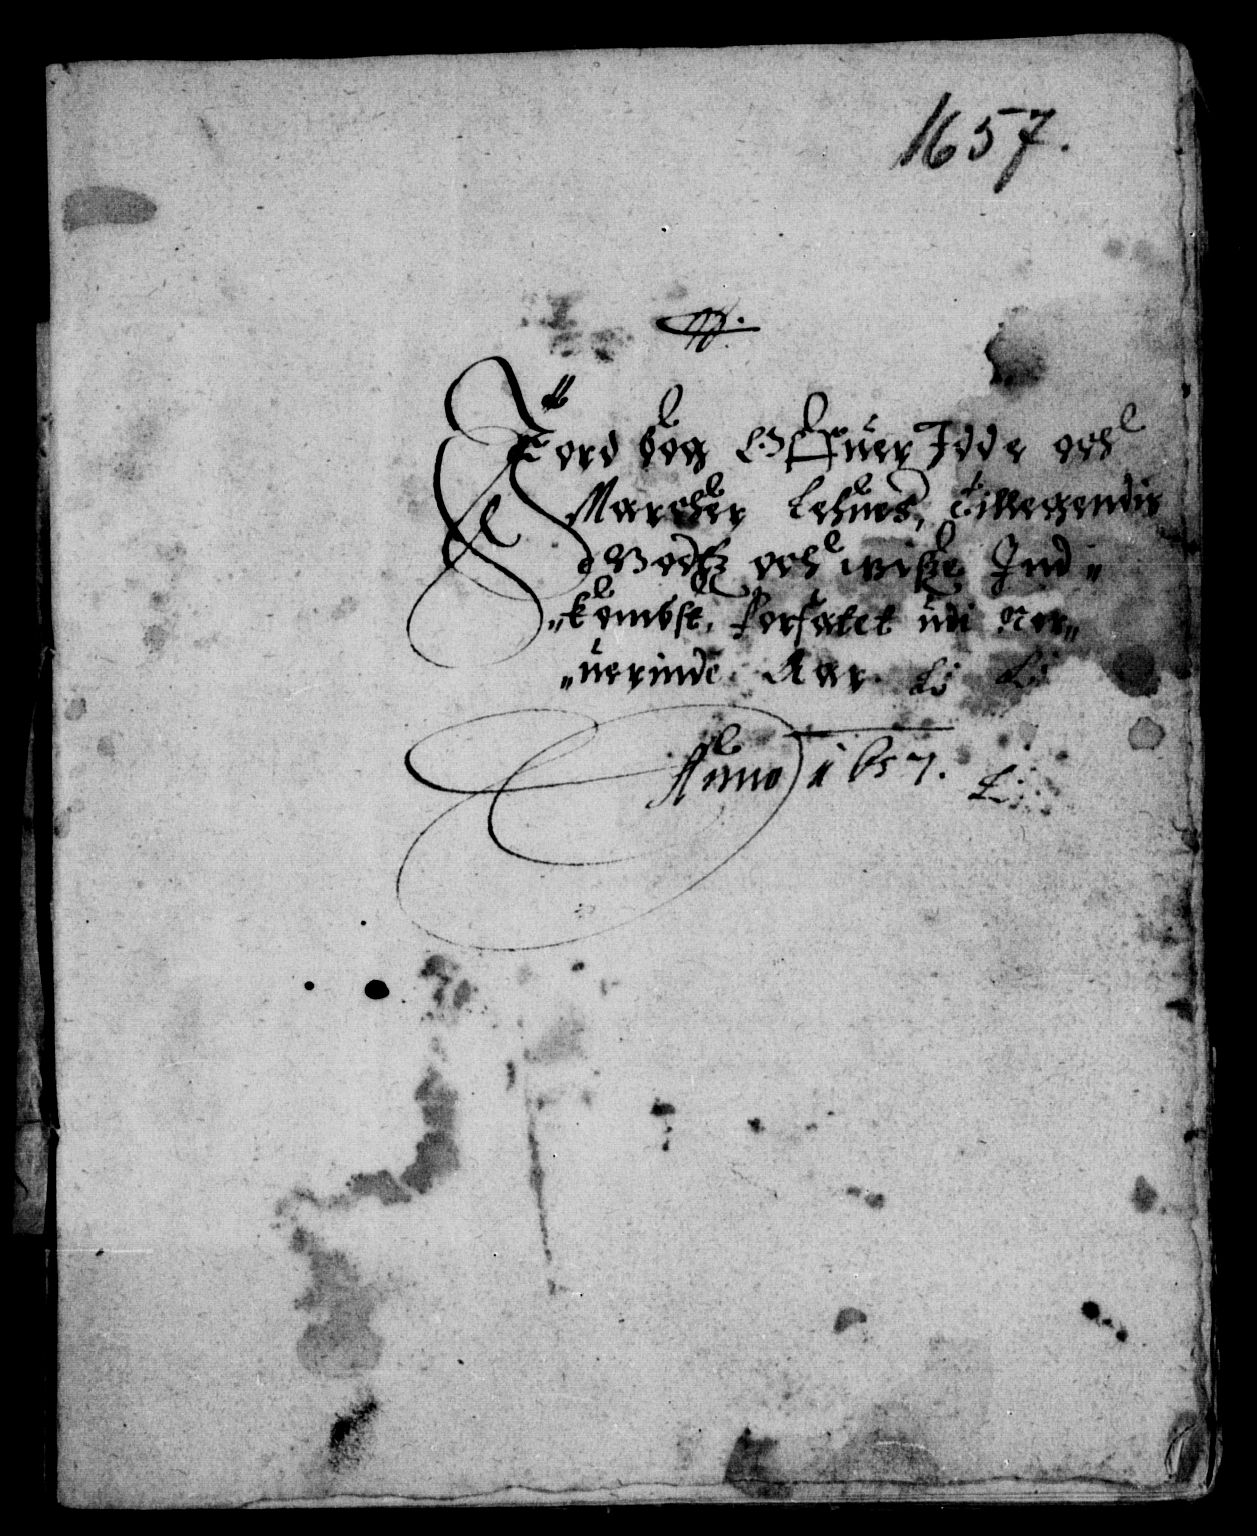 1657.
Jord bog Offuer Idde och
Marcher Lehnes, tillegendis
Godtz och wiße Ind¬
„kombst, forfatet udi Ner„
„uerinde Aar
Anno 1657.